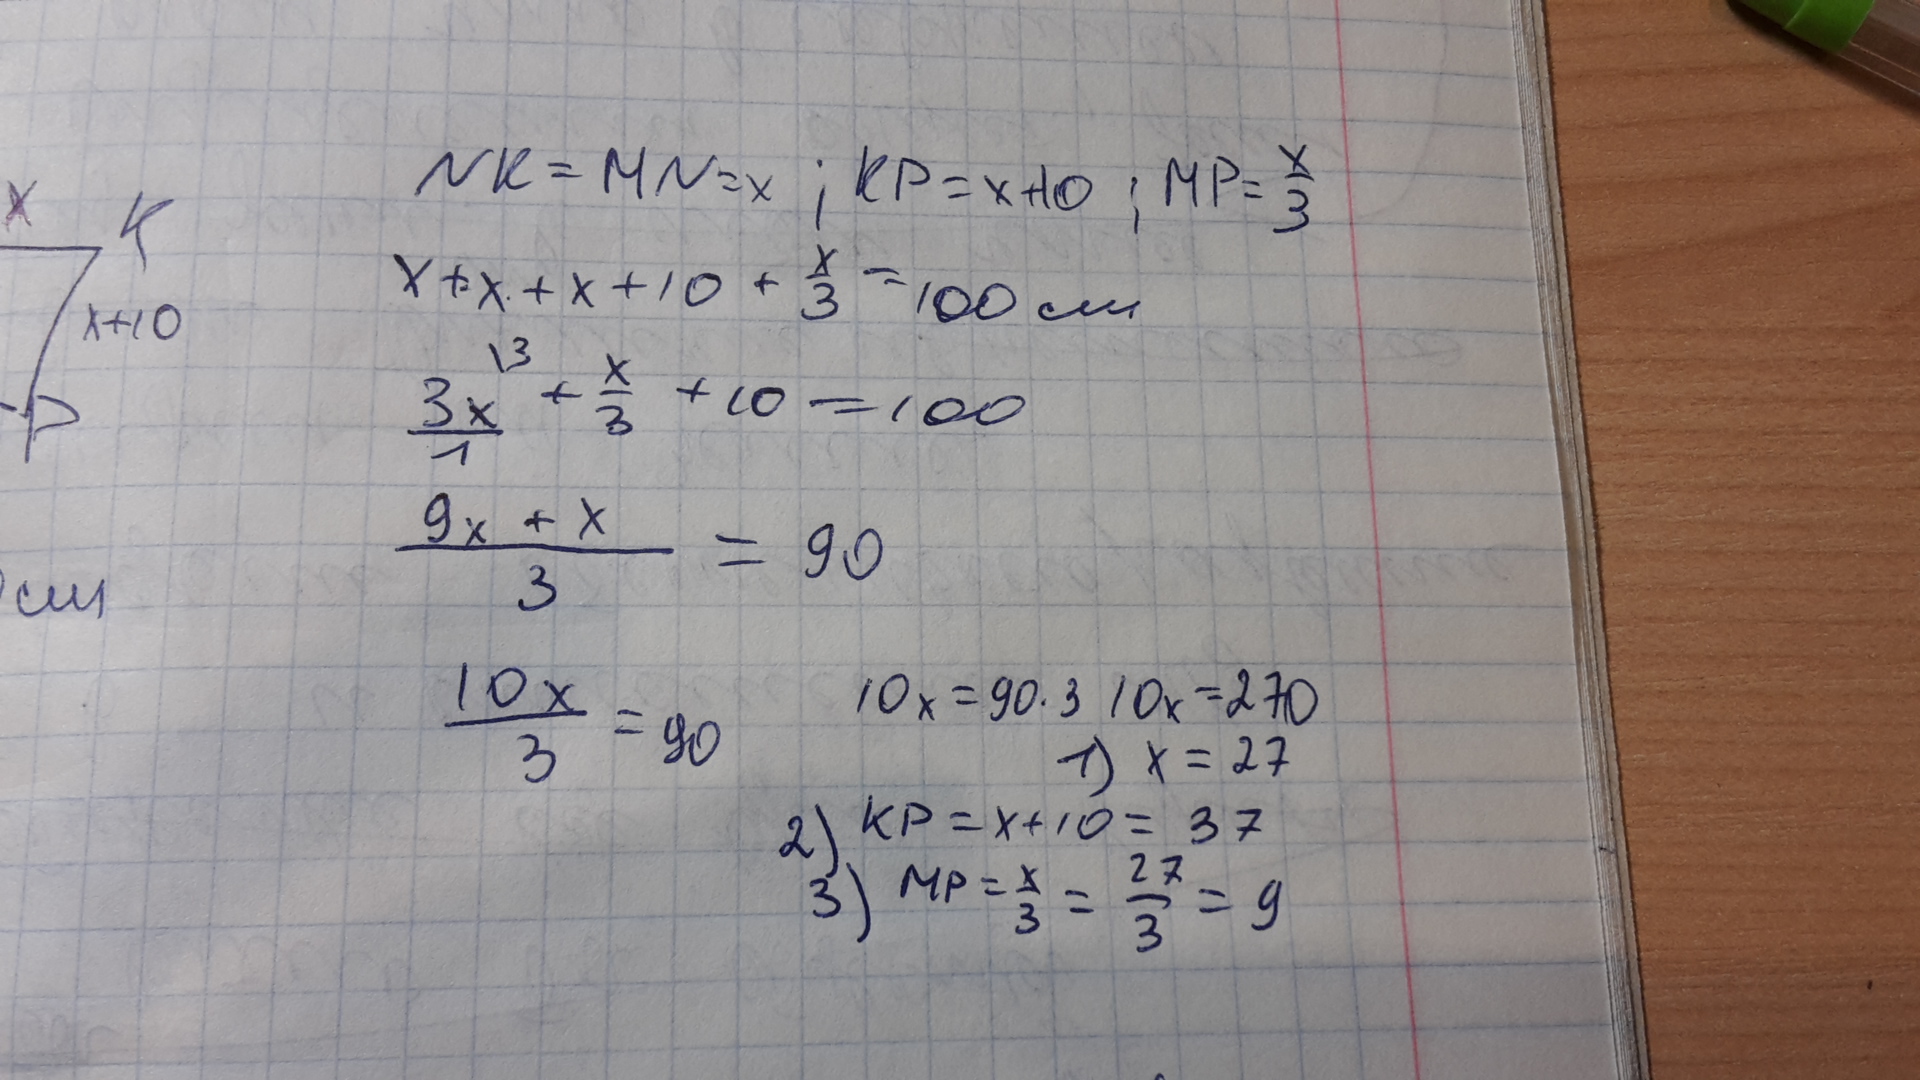 x K
x+10
P
см
NK = MN = x ; KP = x+10 ; MP = x/3
x + x + x + 10 + x/3 = 100 см
3x/1 \3 + x/3 + 10 = 100
9x + x / 3 = 90
10x/3 = 90 10x = 90·3 10x = 270
1) x = 27
2) KP = x+10 = 37
3) MP = x/3 = 27/3 = 9